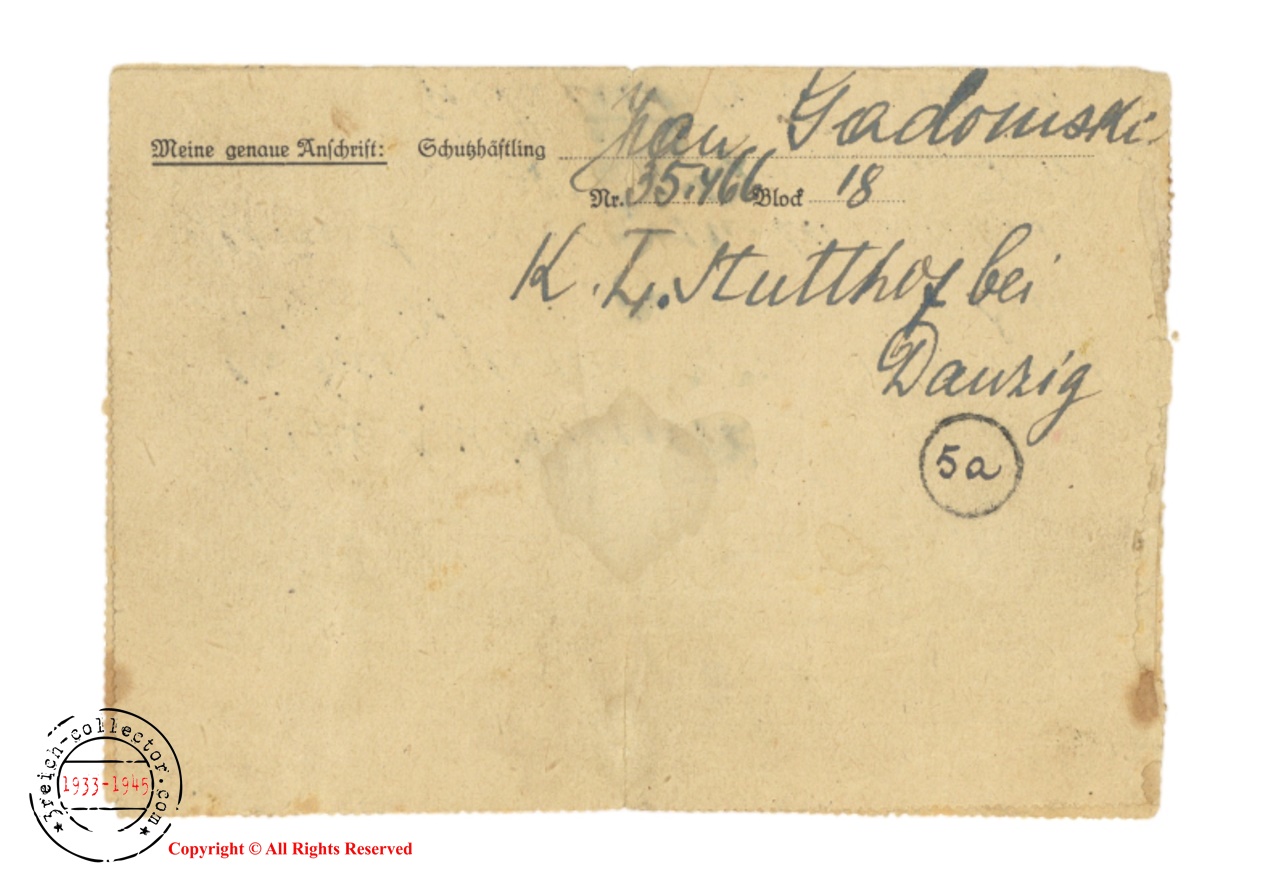 Meine genaue Anschrift: Schutzhäftling Jan Gadomski
Nr. 35.466 Block 18
K. L. Stutthof bei
Danzig
5a
3reich-collector.com
1933-1945
Copyright © All Rights Reserved